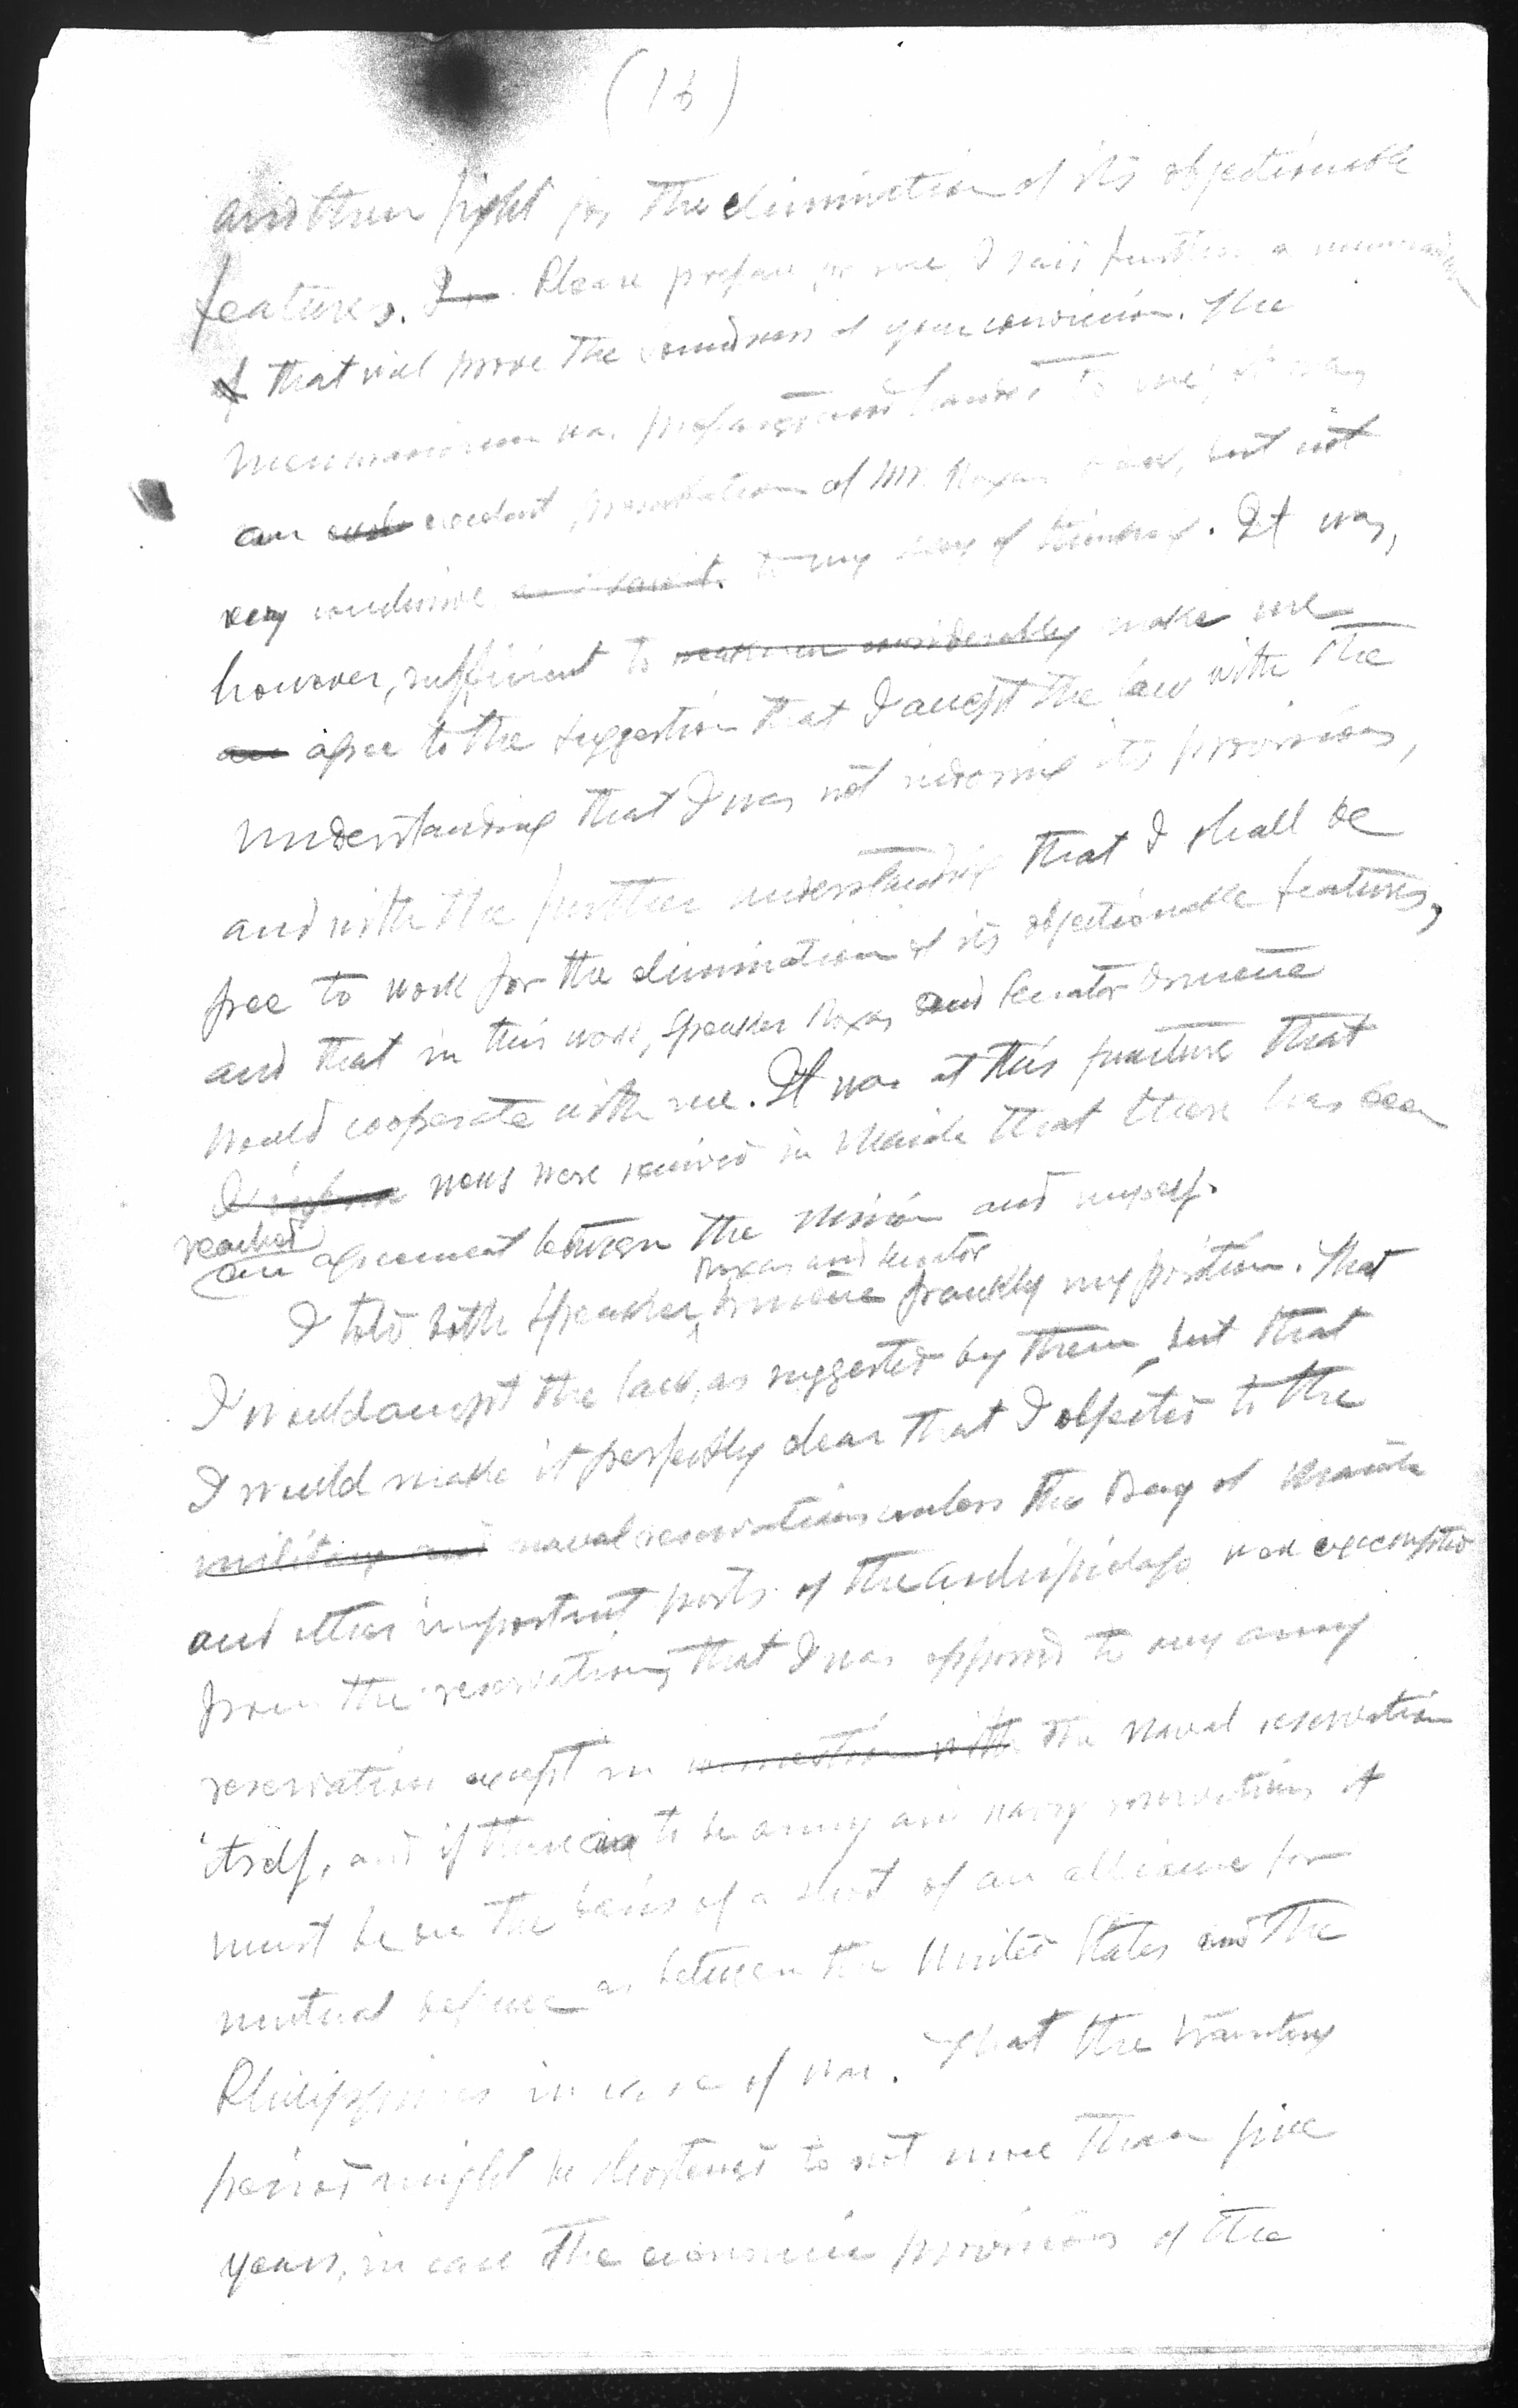 (16)
and then fight for the elimination of its objectionable
features. I Please prepare for me, I said further, a memorandum
of that will prove the soundness of your conviction. The
memorandum was prepared and handed to me; it was
an excellent presentation of Mr. Roxas view, but not
very conclusive to my way of thinking. It was,
however, sufficient to weaken me considerably make me
agree to the suggestion that I accept the law with the
understanding that I was not indorsing its provisions,
and with the further understanding that I shall be
free to work for the elimination of its objectionable features,
and that in this work, Speaker Roxas and Senator Osmeña
would cooperate with me. It was at this juncture that
news were received in Manila that there has been
reached
an agreement between the Mission and myself.
Roxas and Senator
I told both Speaker Osmeña frankly my position. That
I would accept the law, as suggested by them, but that
I would make it perfectly clear that I objected to the
military and naval reservations unless the Bay of Manila
and other important ports of the Archipielago were excempted
from the reservations, that I was opposed to any army
reservation except in connection with the naval reservation
itself, and if there are to be army and navy reservations it
must be on the basis of a sort of an alliance for
mutual defense as between the United States and the
Philippines in case of war. That the transitory
period might be shortened to not more than five
years, in case the economic provisions of the